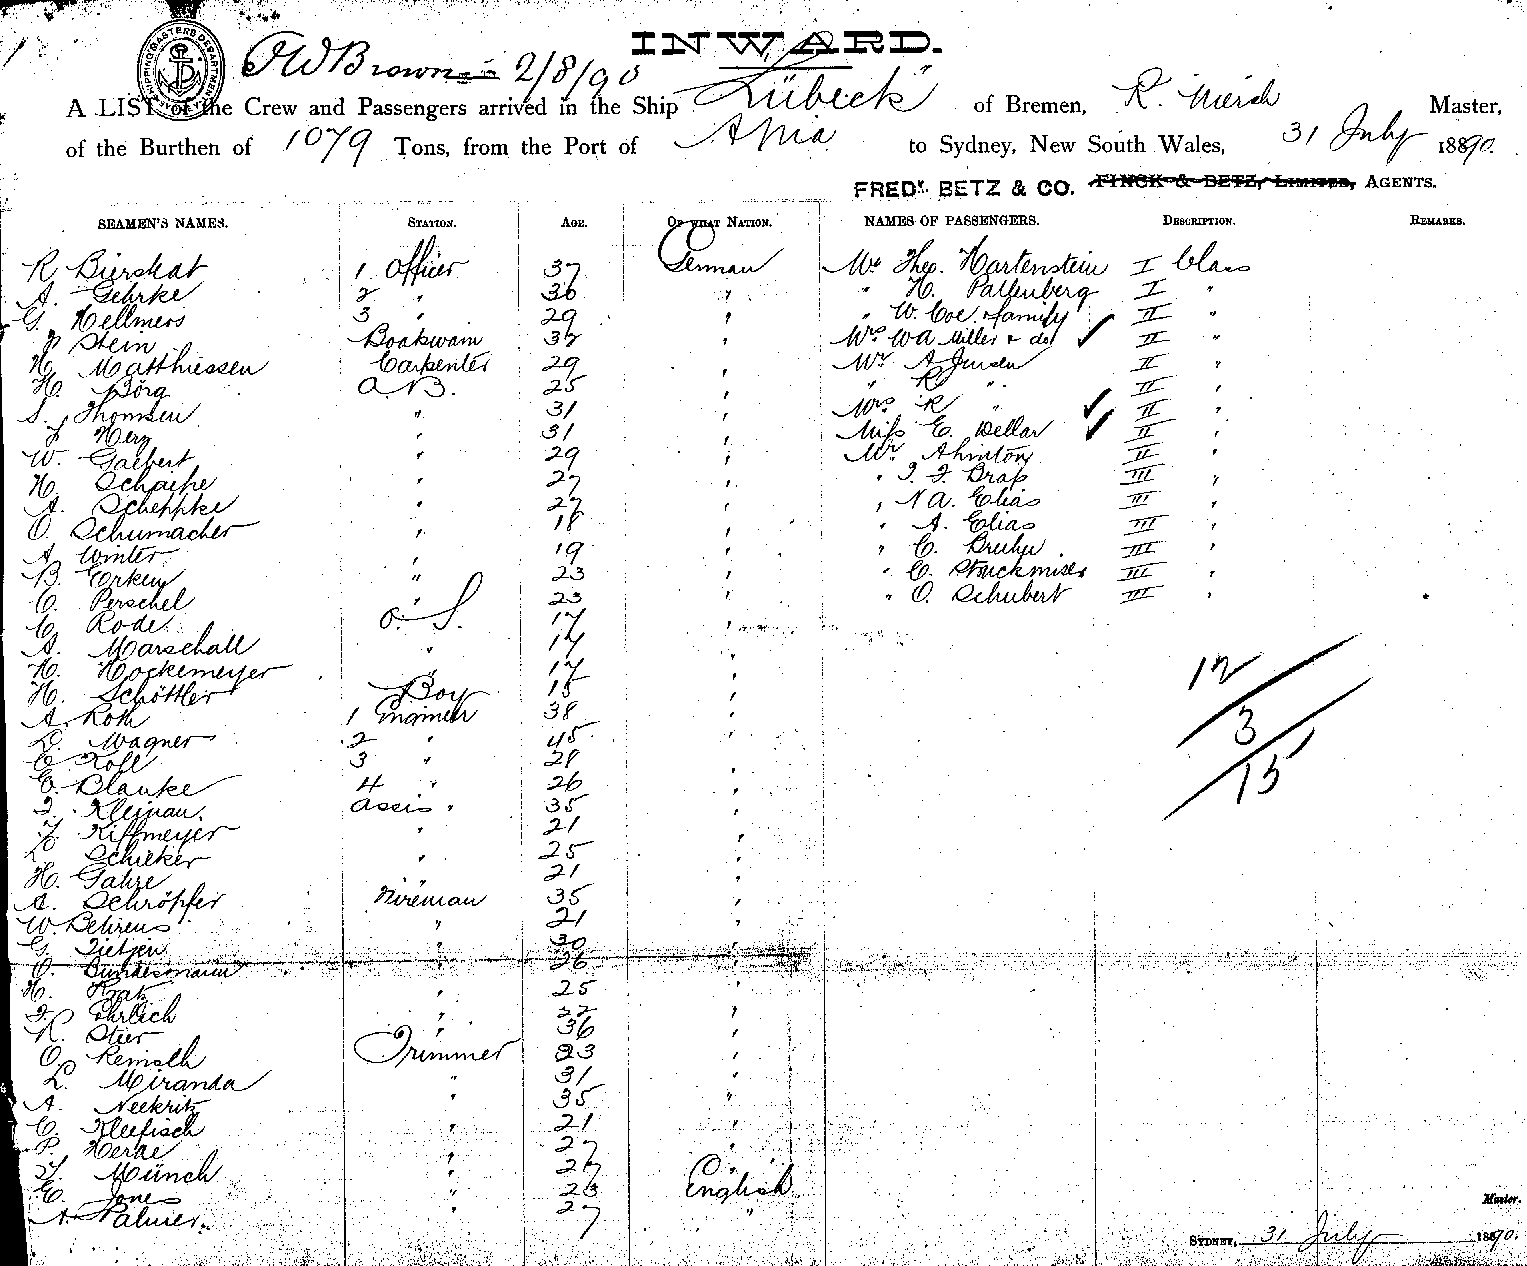 SHIPPING MASTERS DEPARTMENT
INWARD.
FWBrown 2/8/90
A LIST of the Crew and Passengers arrived in the Ship "Lübeck" of Bremen, R. Mersch Master,
of the Burthen of 1079 Tons, from the Port of Apia to Sydney, New South Wales, 31 July 1890.
FREDK. BETZ & CO. FINCK & BETZ, LIMITED, AGENTS.
SEAMEN'S NAMES. STATION. AGE. OF WHAT NATION. NAMES OF PASSENGERS. DESCRIPTION. REMARKS.
R. Bierskat 1 Officer 37 German Mr Theo. Hartenstein I Class
A. Gehrke 2 " 36 " " H. Paltenberg I "
G. Hellmers 3 " 29 " " W. Coe & family II "
J Stein Boatswain 32 " Mrs WA Miller & do II "
H. Matthiessen Carpenter 29 " Mr A Jensen II "
H. Börg A.B. 25 " " R " II "
S. Thomsen " 31 " Mrs R " II "
J Herz " 31 " Miss E. Wellar II "
W. Galbert " 29 " Mr Ahinton II "
H. Schaipe " 27 " " J. F. Brass III "
A. Scheppke " 27 " " N A. Elias III "
O. Schumacher " 18 " " A. Elias III "
A. Winter " 19 " " C. Bruhn III "
B. Erken " 23 " " C. Struckmiser III "
C. Perschel " 23 " " O. Schubert III "
C. Rode O. S. 17 "
A. Marschall " 17 "
H. Hockemeyer " 17 " 12
H. Schöttler Boy 15 "
A. Roth 1 Engineer 38 " 3
D. Wagner 2 " 45 "
C Roll 3 " 28 " 15
E. Blanke 4 " 26 "
F. Kleinau. Assis. " 35 "
F. Kiffmeyer " 21 "
D. Schieker " 25 "
H. Gahre " 21 "
A. Schröpfer Fireman 35 "
W. Behrens " 21 "
G. Tietjen " 30 "
O. Bundesmann " 26 "
H. Kratz " 25 "
F. Ehrlich " 22 "
R. Stier " 36 "
O. Remseth Trimmer 23 "
L. Miranda " 31 "
A. Neekritz " 35 "
C. Kleefisch " 21 "
P. Herde " 27 "
F. Münch " 27 "
E. Jones " 23 English
A. Palmer. " 27 "
Master.
SYDNEY, 31 July 1890.